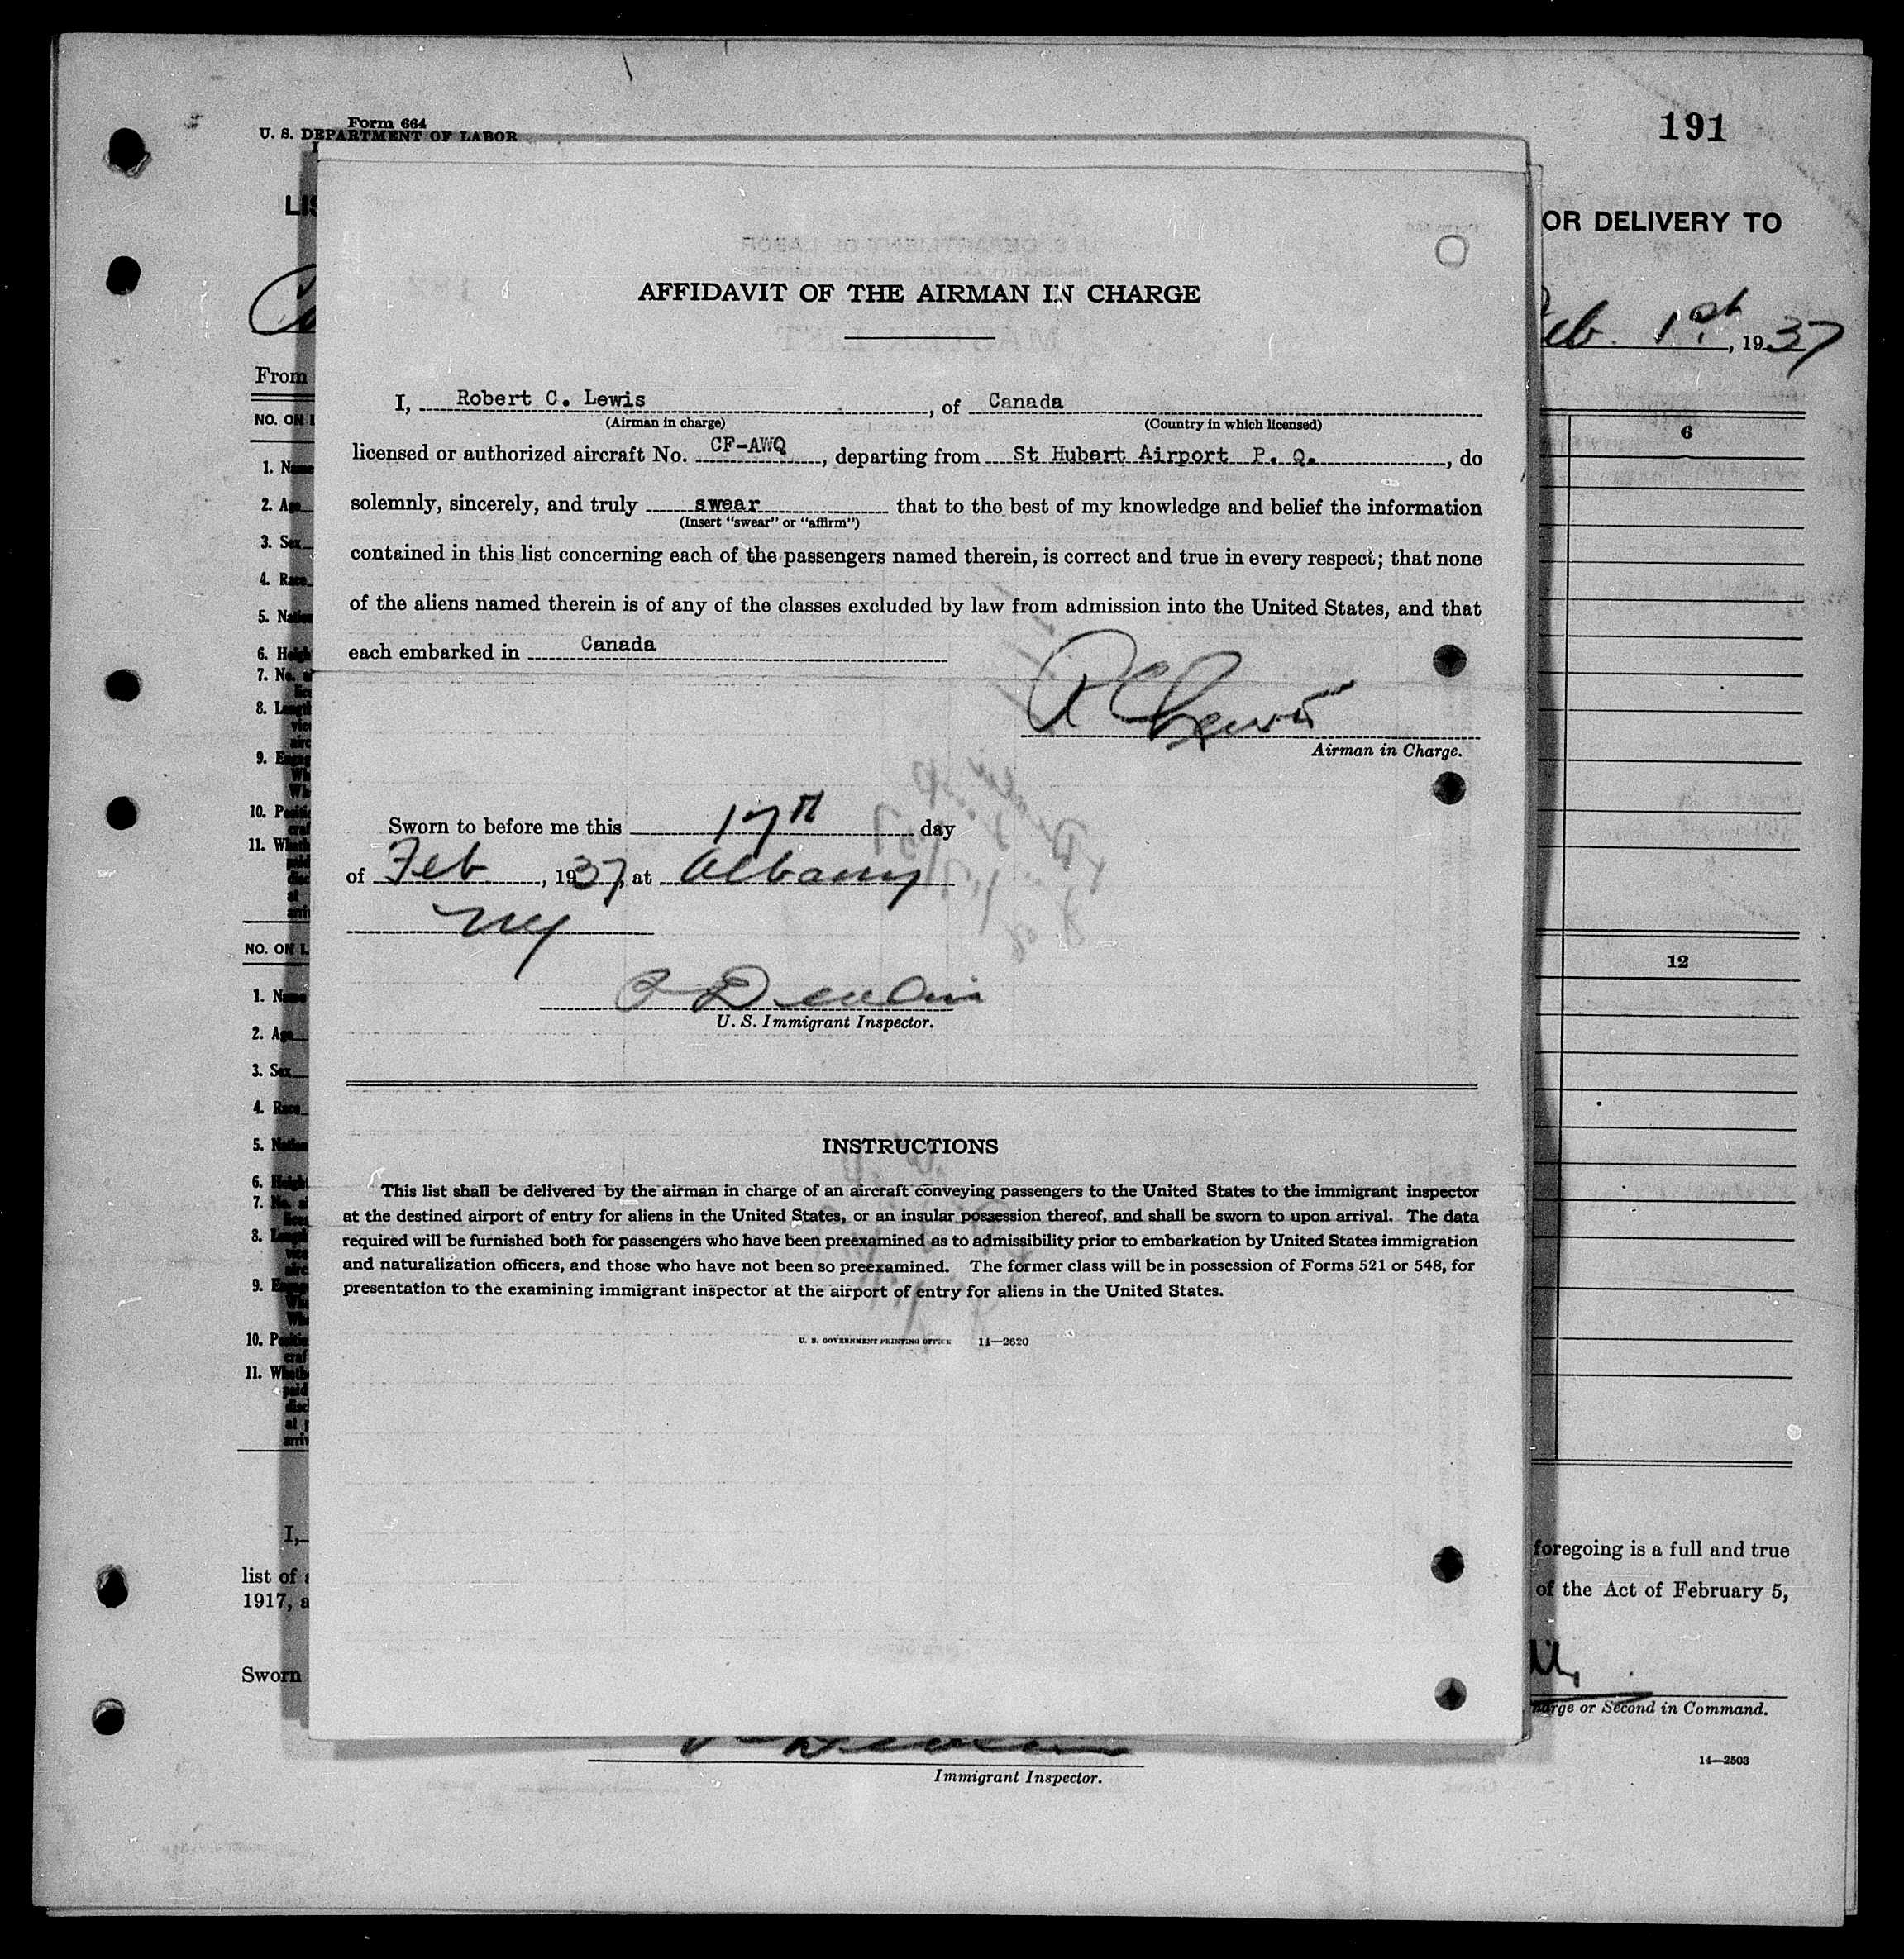 Form 664
U. S. DEPARTMENT OF LABOR
191
OR DELIVERY TO
Feb. 1st, 1937
From
NO. ON
6
AFFIDAVIT OF THE AIRMAN IN CHARGE
I, Robert C. Lewis, of Canada
(Airman in charge) (Country in which licensed)
licensed or authorized aircraft No. CF-AWQ, departing from St Hubert Airport P. Q., do
solemnly, sincerely, and truly swear that to the best of my knowledge and belief the information
(Insert "swear" or "affirm")
contained in this list concerning each of the passengers named therein, is correct and true in every respect; that none
of the aliens named therein is of any of the classes excluded by law from admission into the United States, and that
each embarked in Canada
R C Lewis
Airman in Charge.
Sworn to before me this 17th day
of Feb, 1937, at Albany
NY
U. S. Immigrant Inspector.
INSTRUCTIONS
This list shall be delivered by the airman in charge of an aircraft conveying passengers to the United States to the immigrant inspector
at the destined airport of entry for aliens in the United States, or an insular possession thereof, and shall be sworn to upon arrival. The data
required will be furnished both for passengers who have been preexamined as to admissibility prior to embarkation by United States immigration
and naturalization officers, and those who have not been so preexamined. The former class will be in possession of Forms 521 or 548, for
presentation to the examining immigrant inspector at the airport of entry for aliens in the United States.
U. S. GOVERNMENT PRINTING OFFICE 14—2620
1. Name
2. Age
3. Sex
4. Race
5. Nation
6. Heigh
7. No. of
8. Length
9. Engag
10. Positio
11. Wheth
NO. ON L
12
1. Name
2. Age
3. Sex
4. Race
5. Nation
6. Height
7. No. of
8. Length
9. E
10. Positio
11. Wheth
I,
foregoing is a full and true
list of
of the Act of February 5,
1917, a
Sworn
harge or Second in Command.
Immigrant Inspector.
14—2503